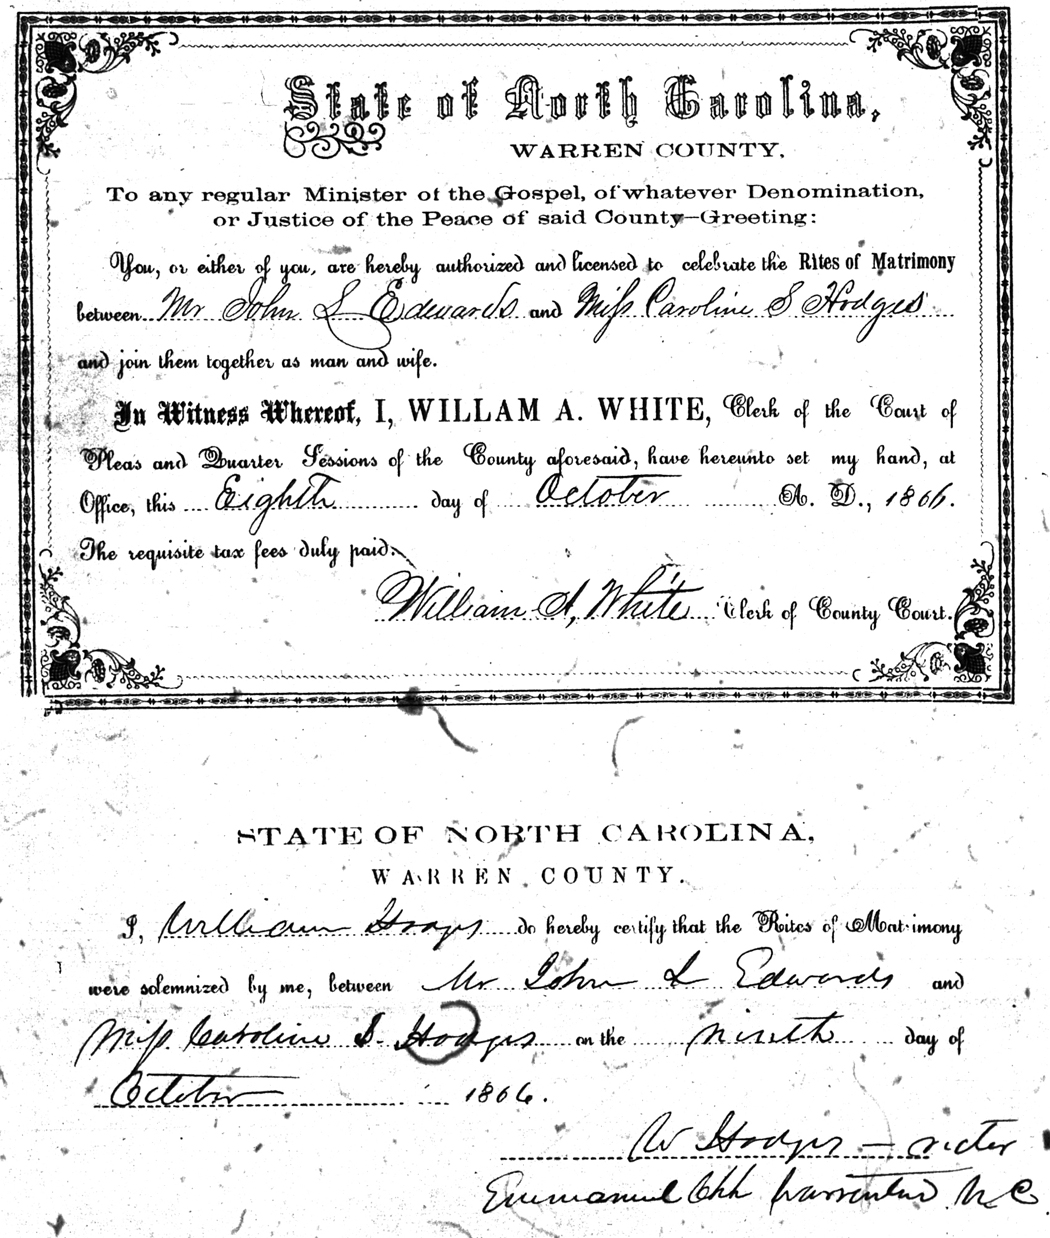 State of North Carolina,
WARREN COUNTY.
To any regular Minister of the Gospel, of whatever Denomination,
or Justice of the Peace of said County—Greeting:
You, or either of you, are hereby authorized and licensed to celebrate the Rites of Matrimony
between Mr John L Edwards and Miss Caroline S Hodges
and join them together as man and wife.
In Witness Whereof, I, WILLAM A. WHITE, Clerk of the Court of
Pleas and Quarter Sessions of the County aforesaid, have hereunto set my hand, at
Office, this Eighth day of October A. D., 1866.
The requisite tax fees duly paid.
William A, White Clerk of County Court.
STATE OF NORTH CAROLINA,
WARREN COUNTY.
I, William Hodges do hereby certify that the Rites of Matrimony
were solemnized by me, between Mr John L Edwards and
Miss Caroline S. Hodges on the ninth day of
October 1866.
W Hodges — rector
Emmanuel Chh Warrenton N. C.